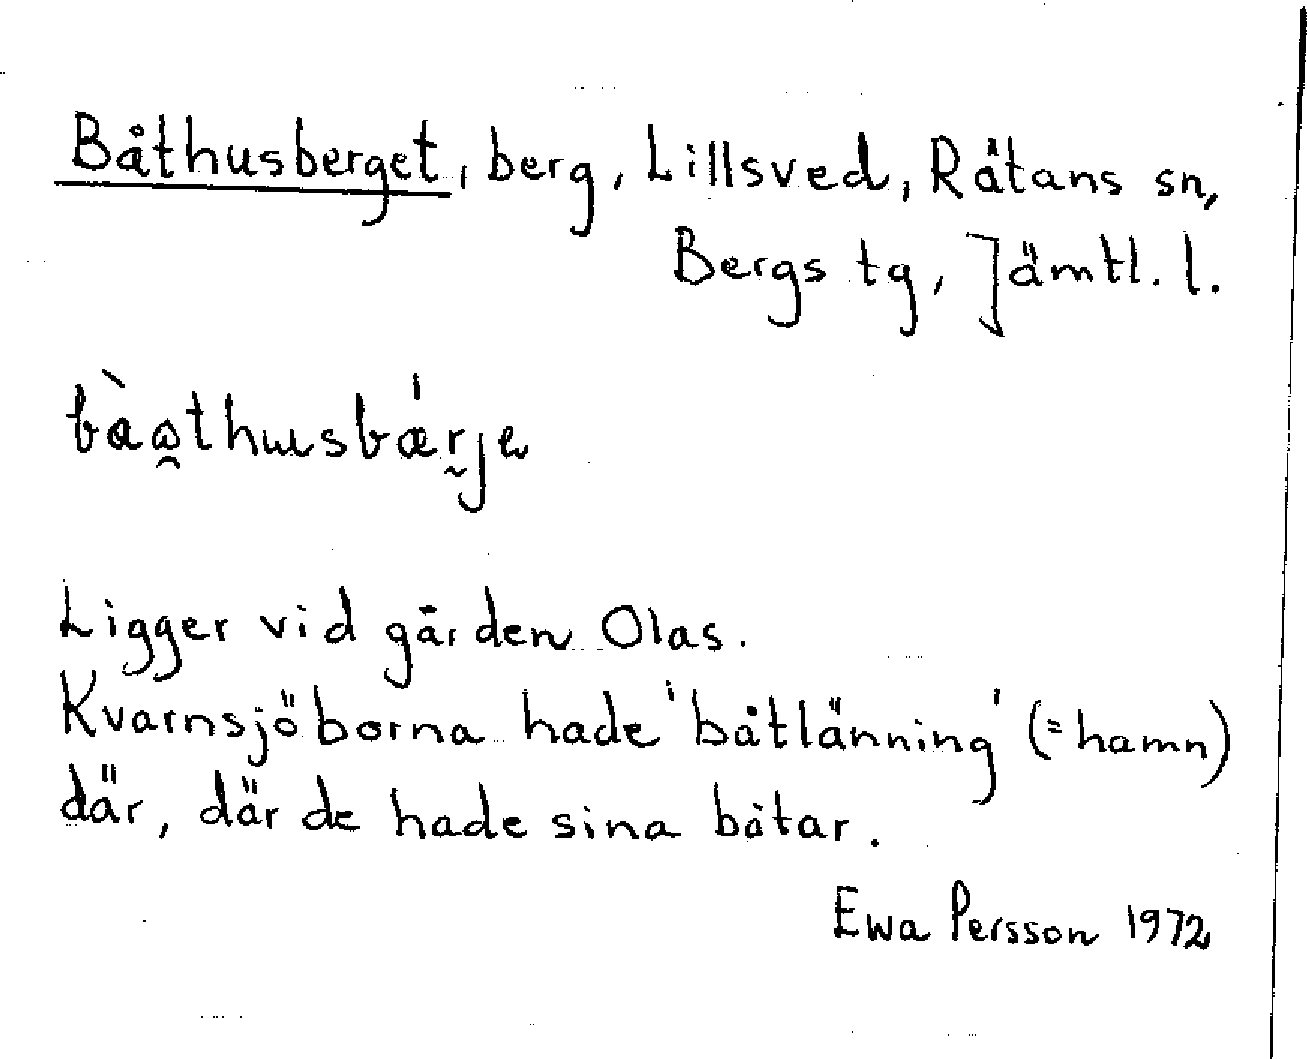 Båthusberget, berg, Lillsved, Råtans sn,
Bergs tg, Jämtl. l.
bàω̯thusbǽr̰je
Ligger vid gården Olas.
Kvarnsjöborna hade 'båtlänning' (=hamn)
där, där de hade sina båtar.
Ewa Persson 1972